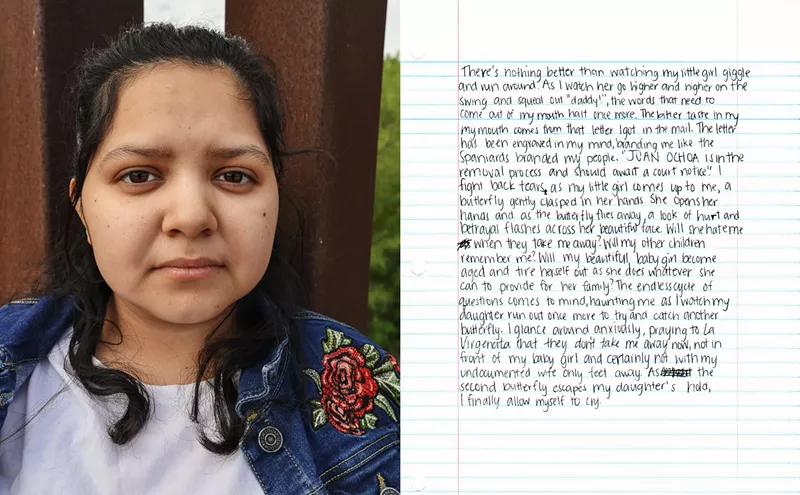 There's nothing better than watching my little girl giggle
and run around. As I watch her go higher and higher on the
swing and squeal out "daddy!", the words that need to
come out of my mouth halt once more. The bitter taste in my
my mouth comes from that letter I got in the mail. The letter
has been engraved in my mind, branding me like the
Spaniards branded my people. "JUAN OCHOA is in the
removal process and should await a court notice." I
fight back tears, as my little girl comes up to me, a
butterfly gently clasped in her hands. She opens her
hands and as the butterfly flies away, a look of hurt and
betrayal flashes across her beautiful face. Will she hate me
when they take me away? Will my other children
remember me? Will my beautifull, baby girl become
aged and tire herself out as she does whatever she
can to provide for her family? The endless cycle of
questions comes to mind, haunting me as I watch my
daughter run out once more to try and catch another
butterfly. I glance around anxiously, praying to La
Virgencita that they don't take me away now, not in
front of my baby girl and certainly not with my
undocumented wife only feet away. As the
second butterfly escapes my daughter's hold,
I finally allow myself to cry.